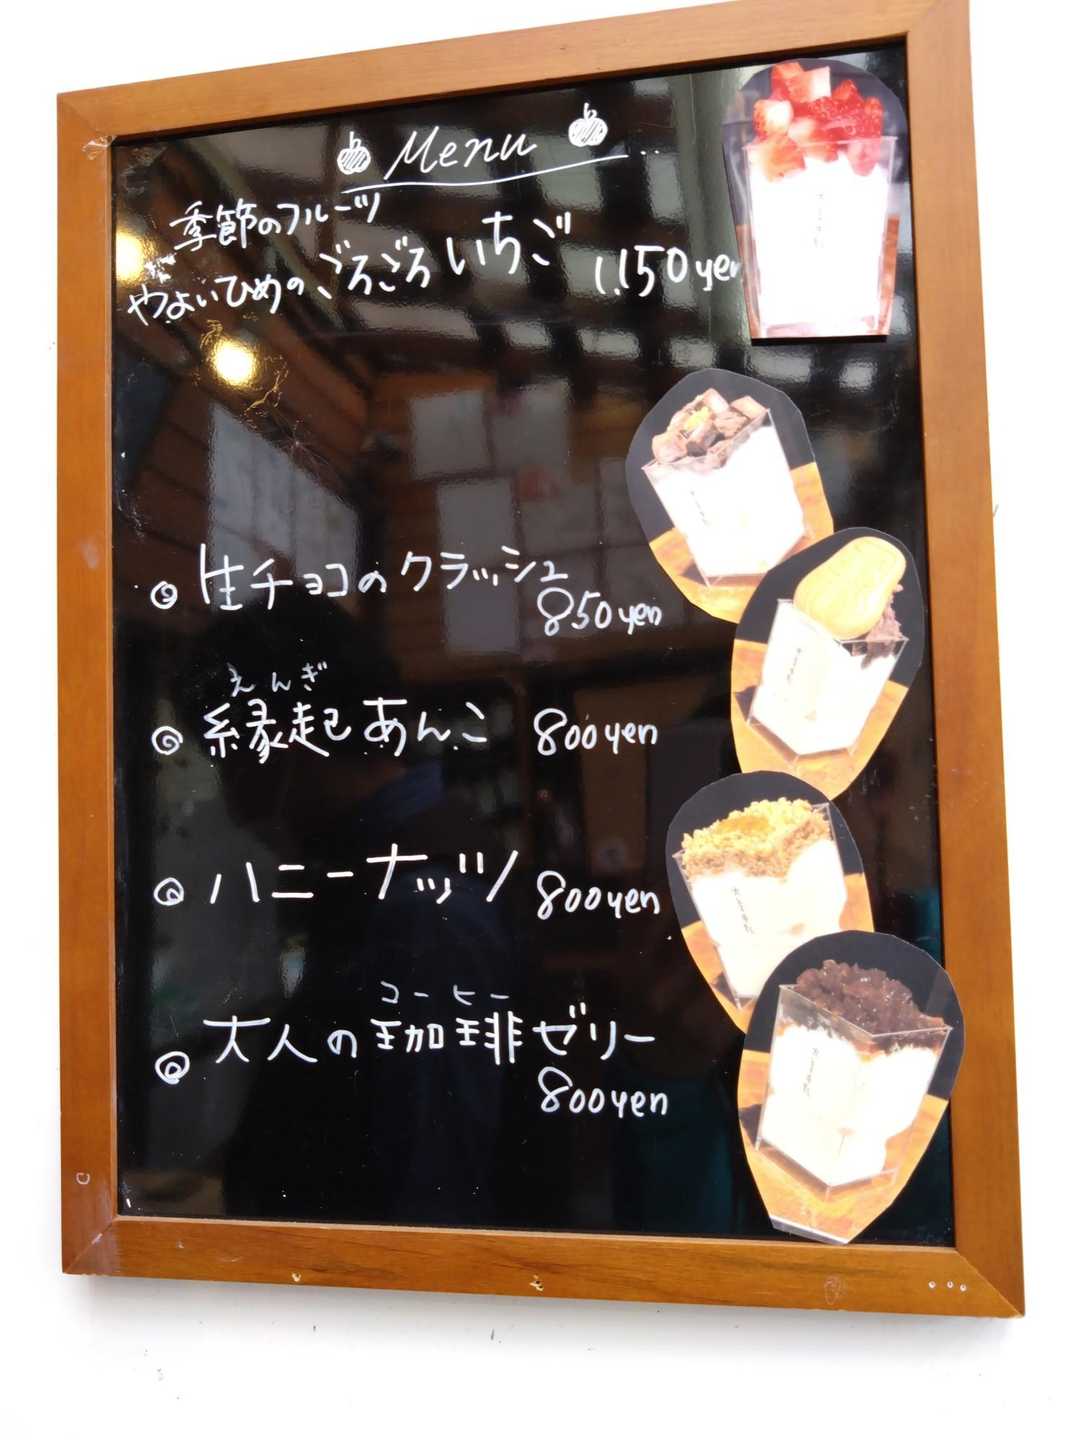 Menu
季節のフルーツ
やよいひめのごろごろいちご 1,150yen
生チョコのクラッシュ
850yen
えんぎ
縁起あんこ 800yen
ハニーナッツ 800yen
コーヒー
大人の珈琲ゼリー
800yen